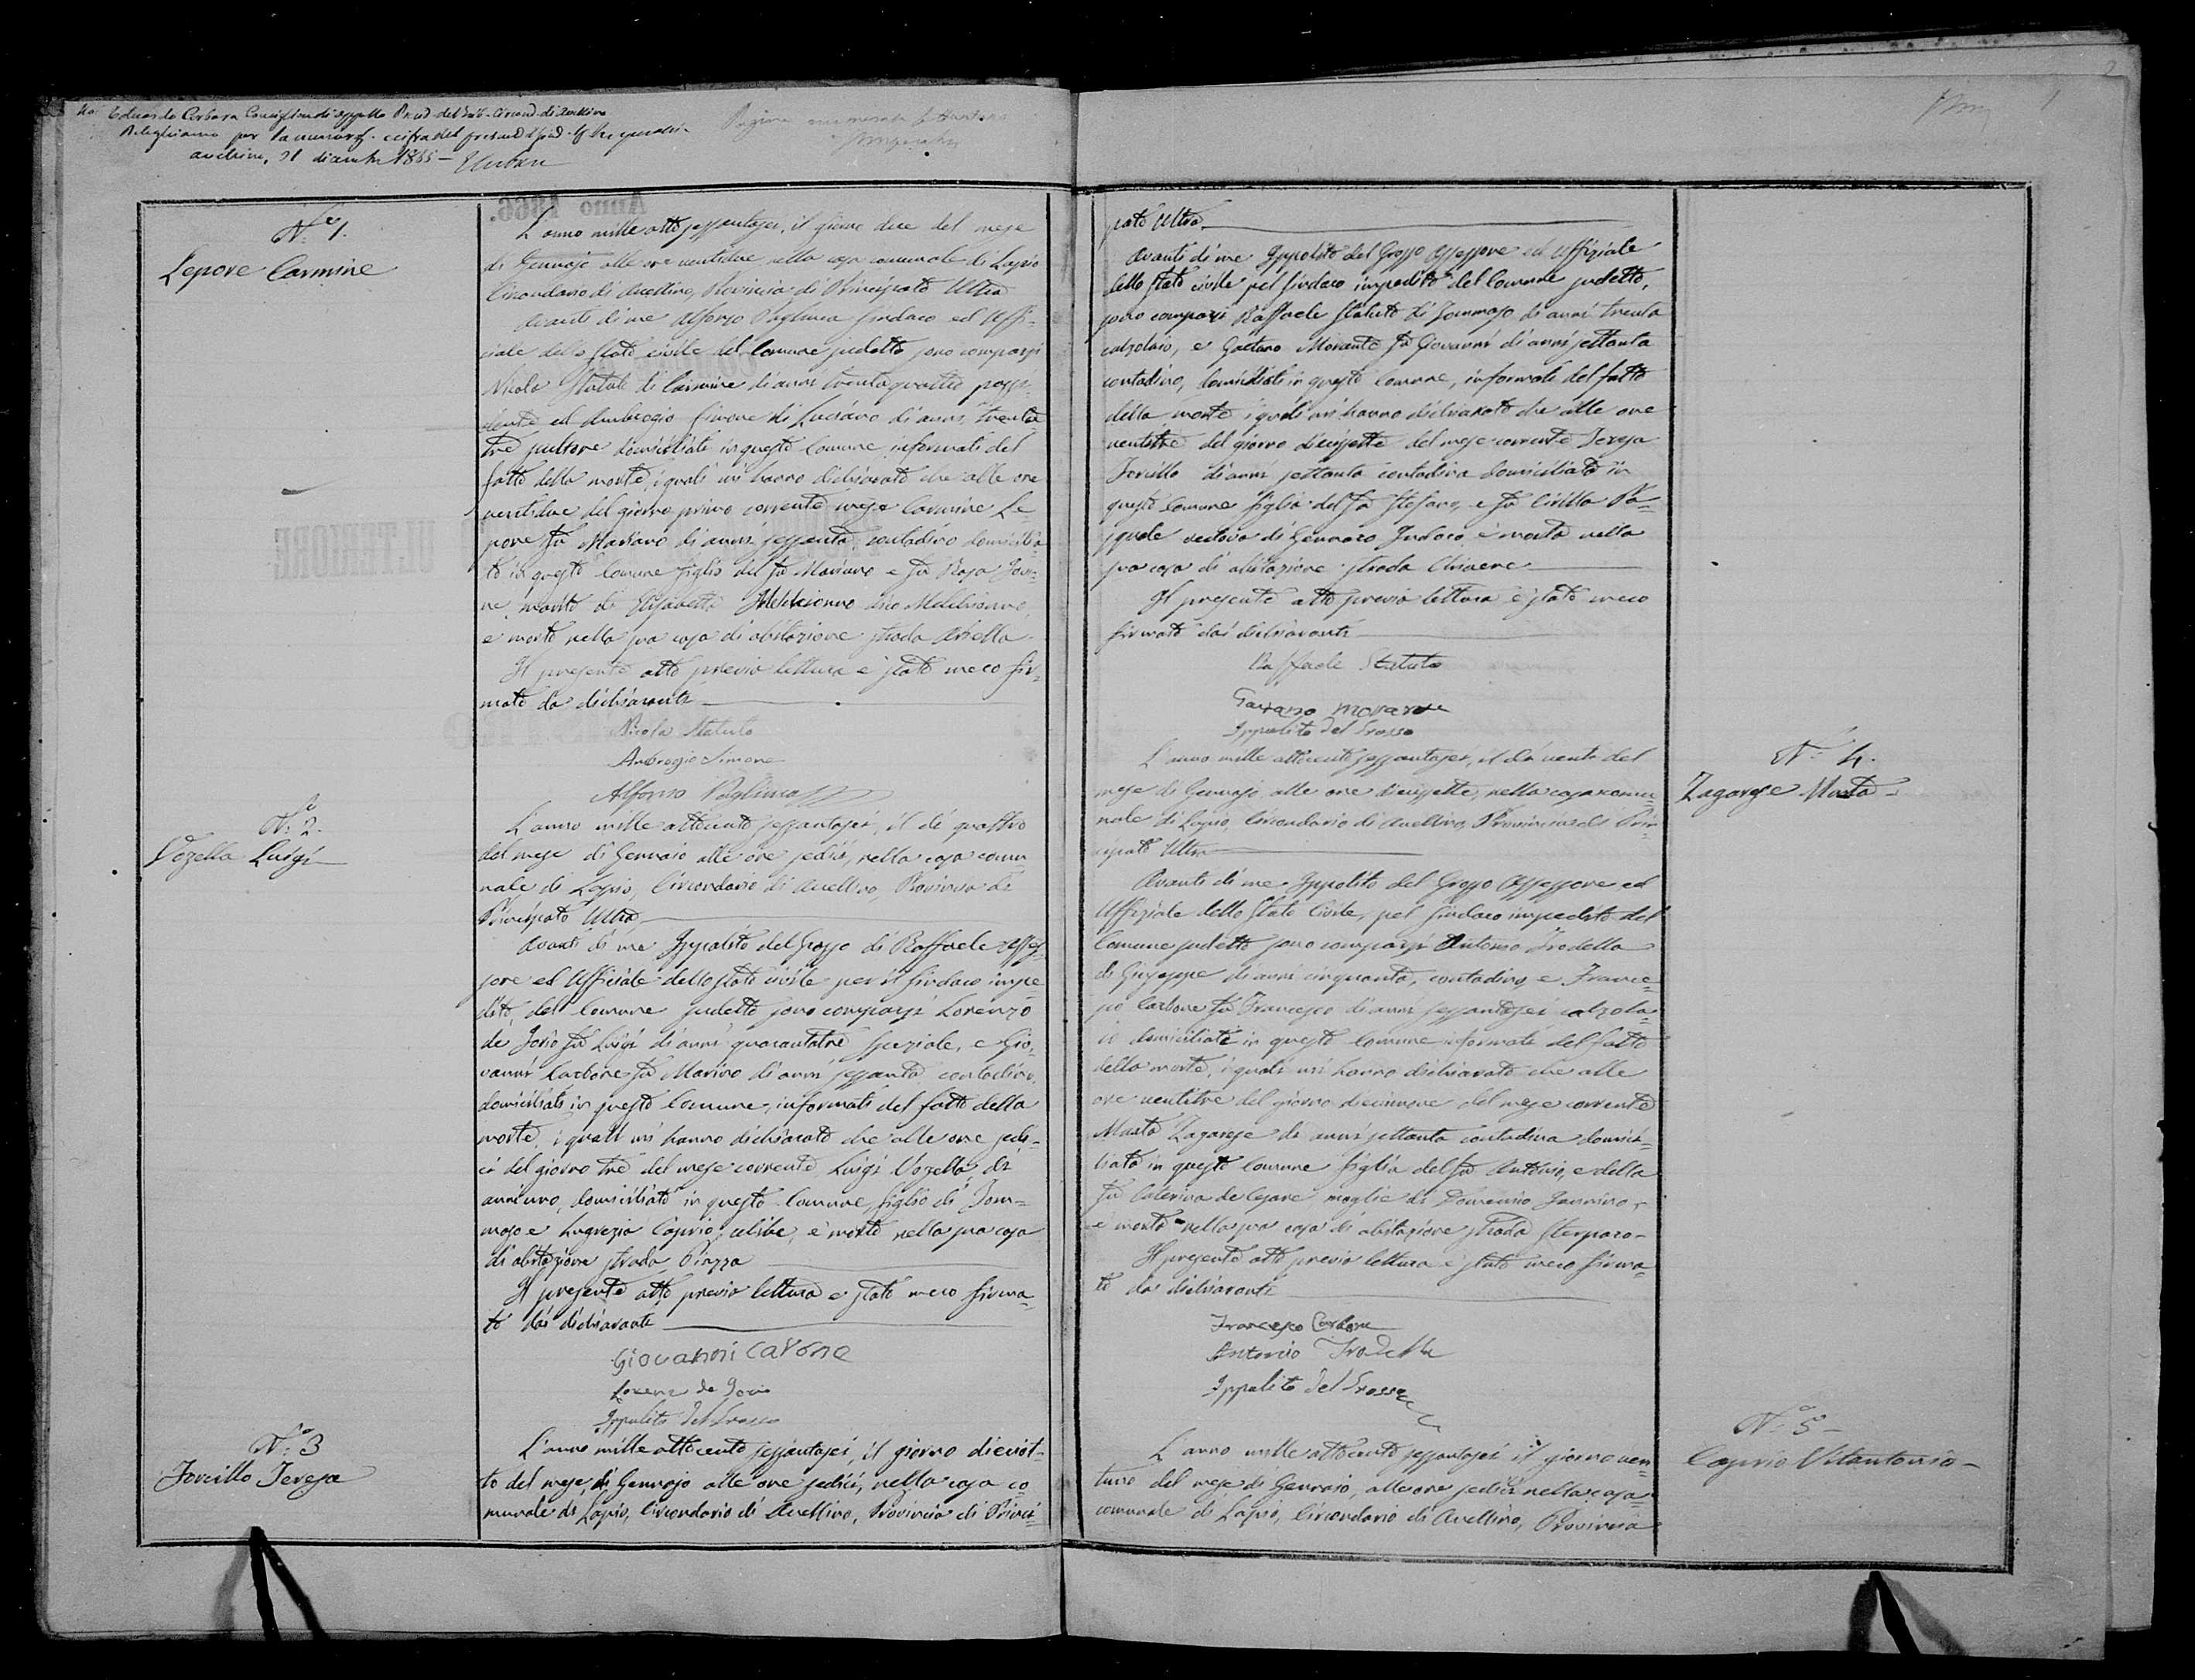 avellino, 31 dicembre 1865 —
1
N.º 1.
Lepore Carmine
L'anno mille ottosessantasei, il giorno due del mese
di Gennajo alle ore ventidue nella casa comunale di Lapio
Circondario di Avellino, Provincia di Principato Ultra
Avanti di me Alfonso Pagliuca Sindaco ed Uffi-
ciale dello Stato civile del Comune sudetto sono comparsi
Nicola Statuto di Carmine di anni trentaquattro possi-
dente ed Ambrogio Simone di Luciano di anni trenta
tre domiciliati in questo Comune informati del
fatto della morte, i quali mi hanno dichiarato che alle ore
ventidue del giorno primo corrente mese Carmine Le-
pore fu Mariano di anni sessanta, contadino domicilia-
to in questo Comune figlio del fu Mariano e fu Rosa
marito di Elisabetta
e morto nella sua casa di abitazione strada
Il presente atto previo lettura è stato meco fir-
mato da dichiaranti
Nicola Statuto
Ambrogio Simone
Alfonso Pagliuca
N.º 2.
Vozella Luigi
L'anno mille ottocento sessantasei, il dì quattro
del mese di Gennaio alle ore sedici, nella casa comu-
nale di Lapio, Circondario di Avellino, Provincia di
Principato Ultra
Avanti di me Ippolito del Grosso di Raffaele Asses-
sore ed Ufficiale dello stato civile per il Sindaco impe-
dito, del Comune sudetto sono comparsi Lorenzo
de Jorio fu Luigi di anni quarantatre speziale, e Gio-
vanni Carbone fu Marino di anni sessanta contadino,
domiciliati in questo Comune, informati del fatto della
morte, i quali mi hanno dichiarato che alle ore sedi-
ci del giorno tre del mese corrente Luigi Vozella, di
anni uno, domiciliato in questo Comune, figlio di Tom-
maso e Lugrezia Caprio, celibe, è morto nella sua casa
di abitazione strada Piazza
Il presente atto previo lettura è stato meco firma-
to dai dichiaranti
Giovanni Carbone
Lorenzo de Jorio
Ippolito del Grosso
N.º 3
Forcillo Teresa
L'anno mille ottocento sessantasei, il giorno dieciot-
to del mese di Gennajo alle ore sedici, nella casa co-
munale di Lapio, Circondario di Avellino, Provincia di Princi-
pato Ultra
Avanti di me Ippolito del Grosso Assessore ed Uffiziale
dello stato civile pel Sindaco impedito del Comune sudetto,
sono comparsi Raffaele Statuto di Tommaso di anni trenta
calzolaio, e Gaetano Morante fu Giovanni di anni settanta
contadino, domiciliati in questo Comune, informati del fatto
della morte i quali mi hanno dichiarato che alle ore
ventitre del giorno diecissette del mese corrente Teresa
Forcillo di anni settanta contadina domiciliata in
questo Comune figlia del fu Stefano, e fu Civilla Pa-
squale vedova di Gennaro è morta nella
sua casa di abitazione strada
Il presente atto previo lettura è stato meco
firmato dai dichiaranti
Raffaele Statuto
Gaetano Morante
Ippolito del Grosso
N.º 4.
Zagarese Marta
L'anno mille ottocento sessantasei, il dì venti del
mese di Gennajo alle ore diecissette, nella casa comu-
nale di Lapio, Circondario di Avellino, Provincia di Prin-
cipato Ultra
Avanti di me Ippolito del Grosso Assessore ed
Uffiziale dello Stato Civile, pel Sindaco impedito del
Comune sudetto sono comparsi Antonio Trodella
di Giuseppe di anni cinquanta, contadino, e France-
sco Carbone fu Francesco di anni sessantasei calzola-
io domiciliati in questo Comune informati del fatto
della morte, i quali mi hanno dichiarato che alle
ore ventitre del giorno diecinnove del mese corrente
Marta Zagarese di anni settanta contadina domici-
liata in questo Comune figlia del fu Antonio, e della
fu Caterina de Cesare moglie di Domenico Iannino
è morta nella sua casa di abitazione strada Sterparo
Il presente atto previo lettura è stato meco firma-
to da dichiaranti
Francesco Carbone
Antonio Trodella
Ippolito del Grosso
N.º 5
Caprio Vitantonio
L'anno mille ottocento sessantasei il giorno ven-
tuno del mese di Gennaio, alle ore sedici nella casa
comunale di Lapio, Circondario di Avellino, Provincia